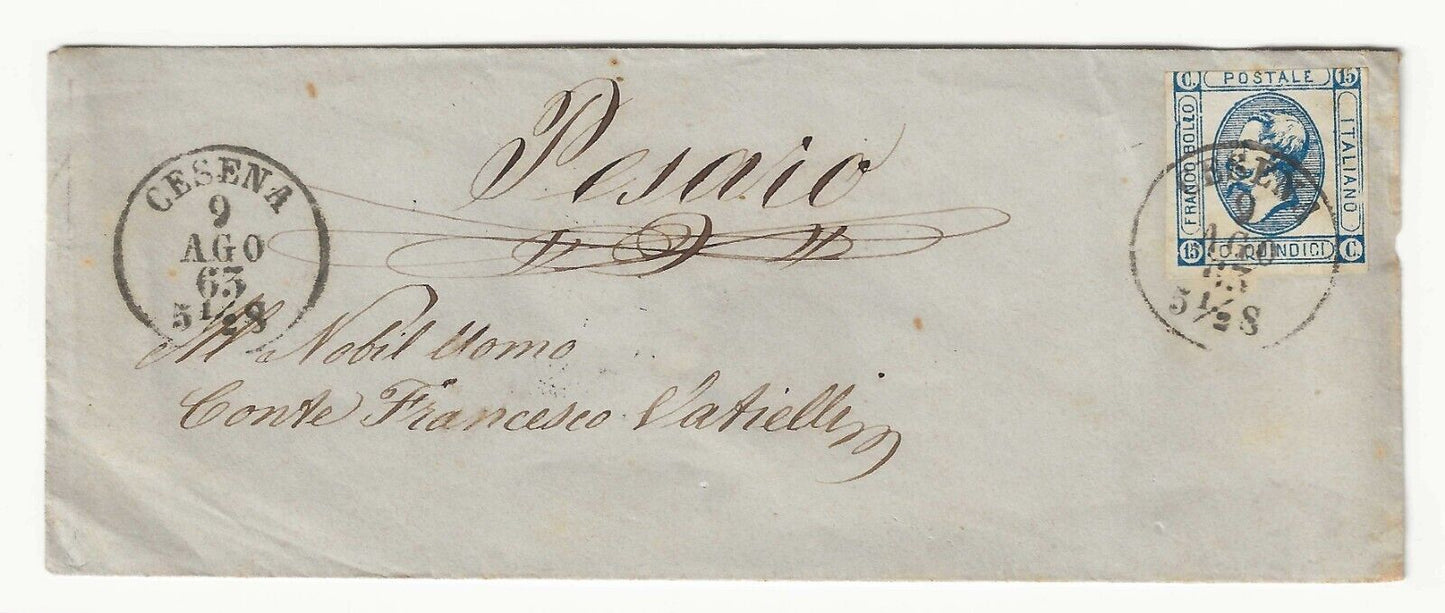 Pesaro
CESENA
9
AGO
63
5 1/2 S
C. POSTALE 15
FRANCO BOLLO
ITALIANO
15 C. QUINDICI C.
ESENA
9
AGO
63
5 1/2 S
All Nobil Uomo
Conte Francesco Vatielli